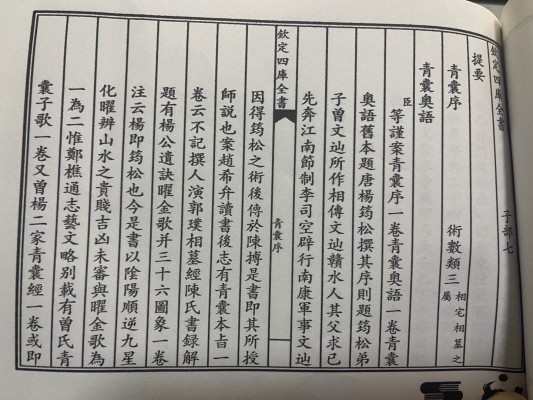 欽定四庫全書 子部七
提要
青囊序 術數類三 相宅相墓之屬
青囊奧語
臣等謹案青囊序一卷青囊奧語一卷青囊
奧語舊本題唐楊筠松撰其序則題筠松弟
子曾文辿所作相傳文辿贛水人其父求已
先奔江南節制李司空辟行南康軍事文辿
欽定四庫全書 青囊序
因得筠松之術後傳於陳摶是書即其所授
師說也案趙希弁讀書後志有青囊本旨一
卷云不記撰人演郭璞相墓經陳氏書録解
題有楊公遺訣曜金歌并三十六圖象一卷
注云楊即筠松也今是書以陰陽順逆九星
化曜辨山水之貴賤吉凶未審與曜金歌為
一為二惟鄭樵通志藝文略別載有曾氏青
囊子歌一卷又曾楊二家青囊經一卷或即